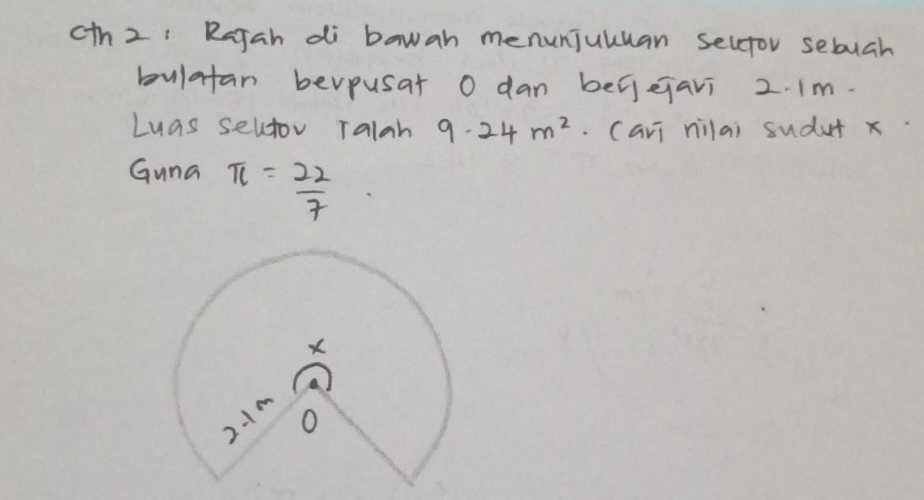 Cth 2 : Rajah di bawah menunjukkan sektor sebuah
bulatan berpusat O dan berjejari 2.1m.
Luas sektor ialah 9.24 m². Cari nilai sudut x.
Guna π = 22/7.
x
2.1m
O